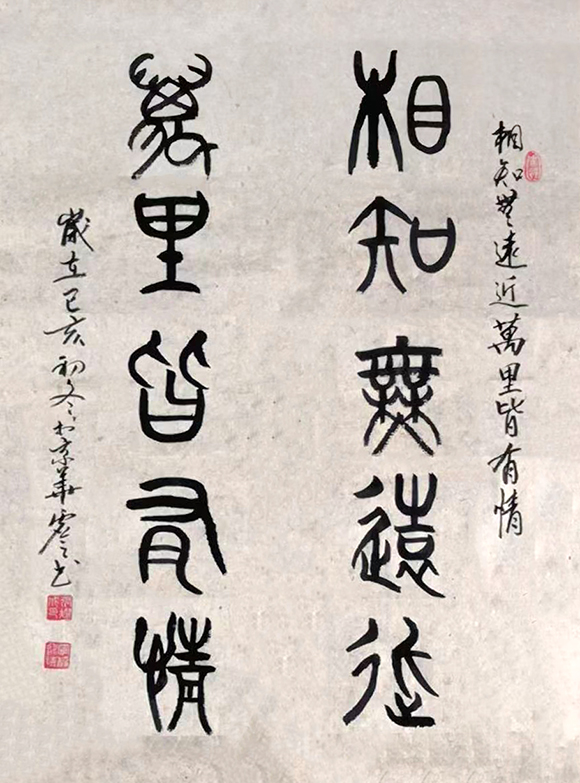 相知無遠近萬里皆有情
相知無遠近
萬里皆有情
歲在己亥初冬於京華书